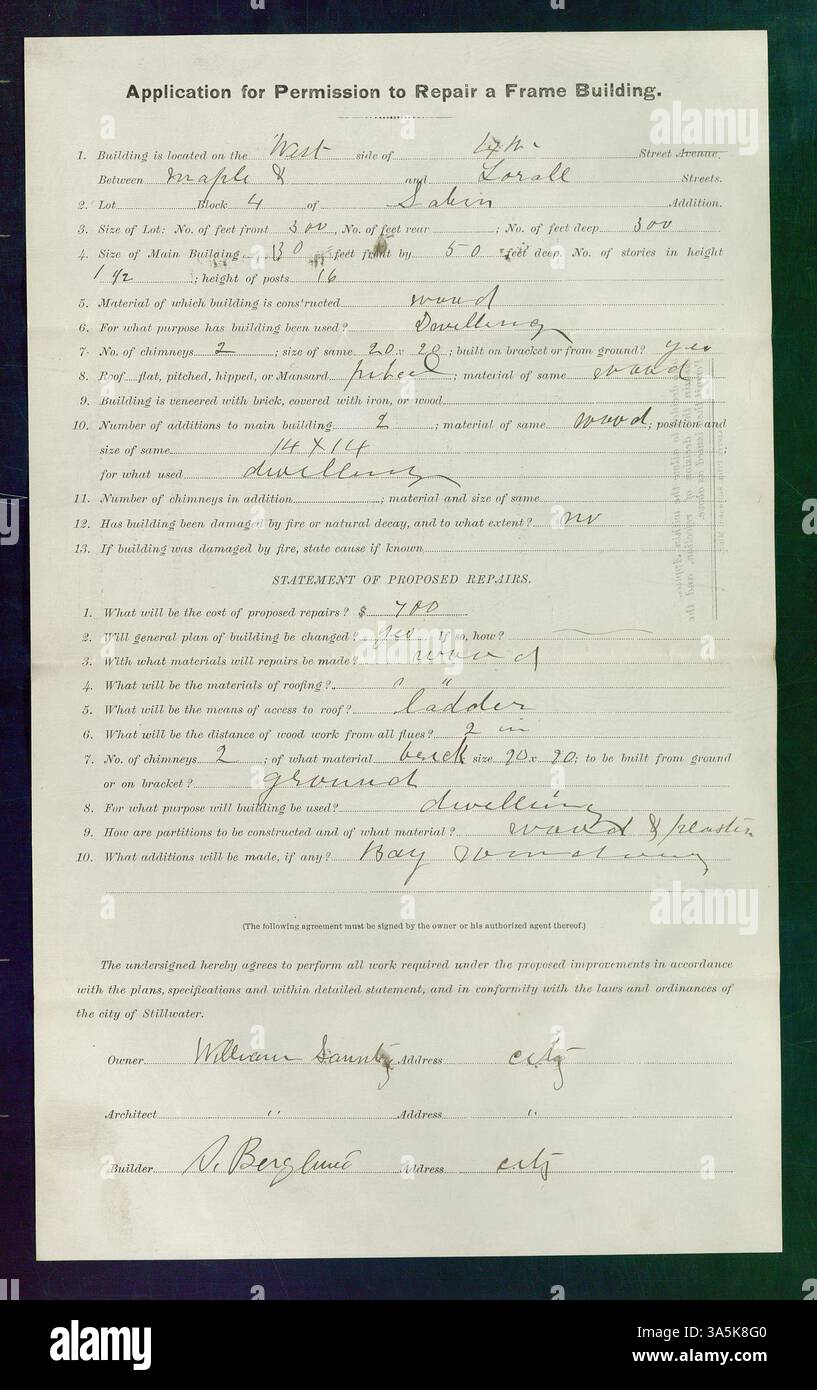 Application for Permission to Repair a Frame Building.
1. Building is located on the West side of 4th Street Avenue.
Between Maple & and Streets.
2. Lot Block 4 of Sabin Addition.
3. Size of Lot: No. of feet front 300, No. of feet rear ; No. of feet deep 300
4. Size of Main Building 30 feet front by 50 feet deep No. of stories in height
1 1/2 ; height of posts 16
5. Material of which building is constructed wood
6. For what purpose has building been used? Dwelling
7. No. of chimneys 2 ; size of same 20 x 20 ; built on bracket or from ground? yes
8. Roof—flat, pitched, hipped, or Mansard ; material of same wood
9. Building is veneered with brick, covered with iron, or wood
10. Number of additions to main building 2 ; material of same wood ; position and
size of same 14 X 14 ;
for what used dwelling
11. Number of chimneys in addition ; material and size of same
12. Has building been damaged by fire or natural decay, and to what extent? no
13. If building was damaged by fire, state cause if known
STATEMENT OF PROPOSED REPAIRS.
1. What will be the cost of proposed repairs? $ 700
2. Will general plan of building be changed? yes If so, how?
3. With what materials will repairs be made? wood
4. What will be the materials of roofing? " "
5. What will be the means of access to roof? ladder
6. What will be the distance of wood work from all flues? 2 in
7. No. of chimneys 2 ; of what material brick size 20 x 20; to be built from ground
or on bracket? ground
8. For what purpose will building be used? dwelling
9. How are partitions to be constructed and of what material? wood & plaster
10. What additions will be made, if any? Bay
(The following agreement must be signed by the owner or his authorized agent thereof.)
The undersigned hereby agrees to perform all work required under the proposed improvements in accordance
with the plans, specifications and within detailed statement, and in conformity with the laws and ordinances of
the city of Stillwater.
Owner William Sauntry Address city
Architect " Address "
Builder S. Berglund Address city
alamy
www.alamy.com
Image ID: 3A5K8G0